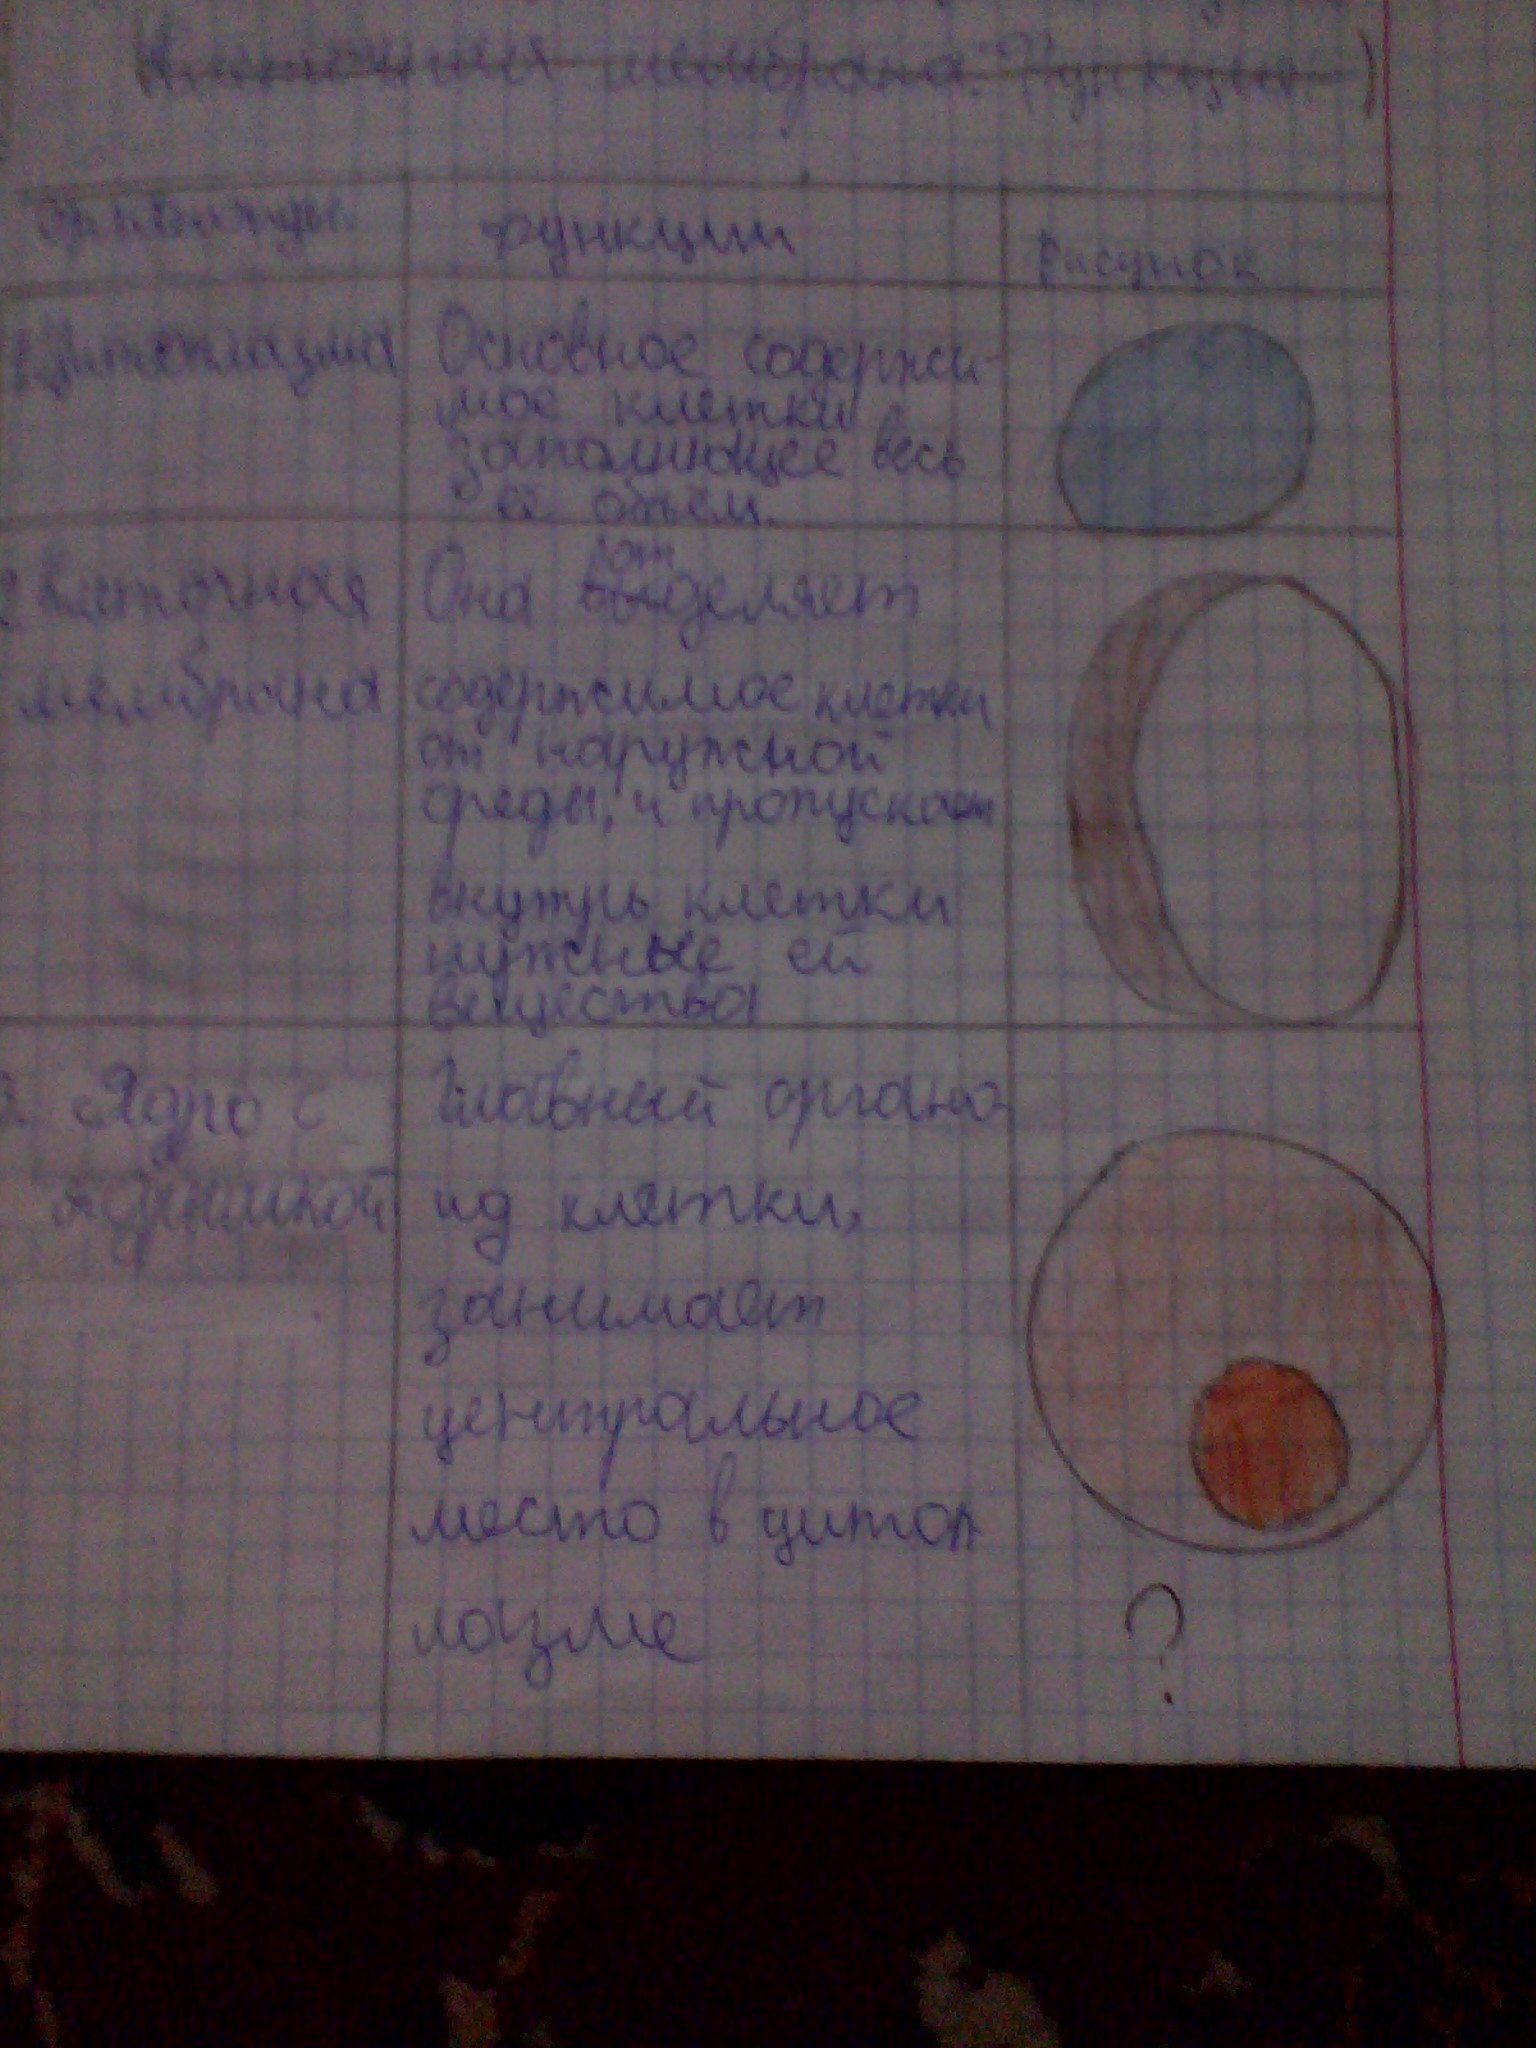 Клеточная мембрана. Функции)
Органоиды функции Рисунок
1 Цитоплазма Основное содержи-
мое клетки
заполняющее весь
её объём.
2 Клеточная Она отделяет
мембрана содержимое клетки
от наружной
среды, и пропускает
внутрь клетки
нужные ей
вещества
3. Ядро с Главный органо-
ядрышкой ид клетки,
занимает
центральное
место в цитоп
лазме
?